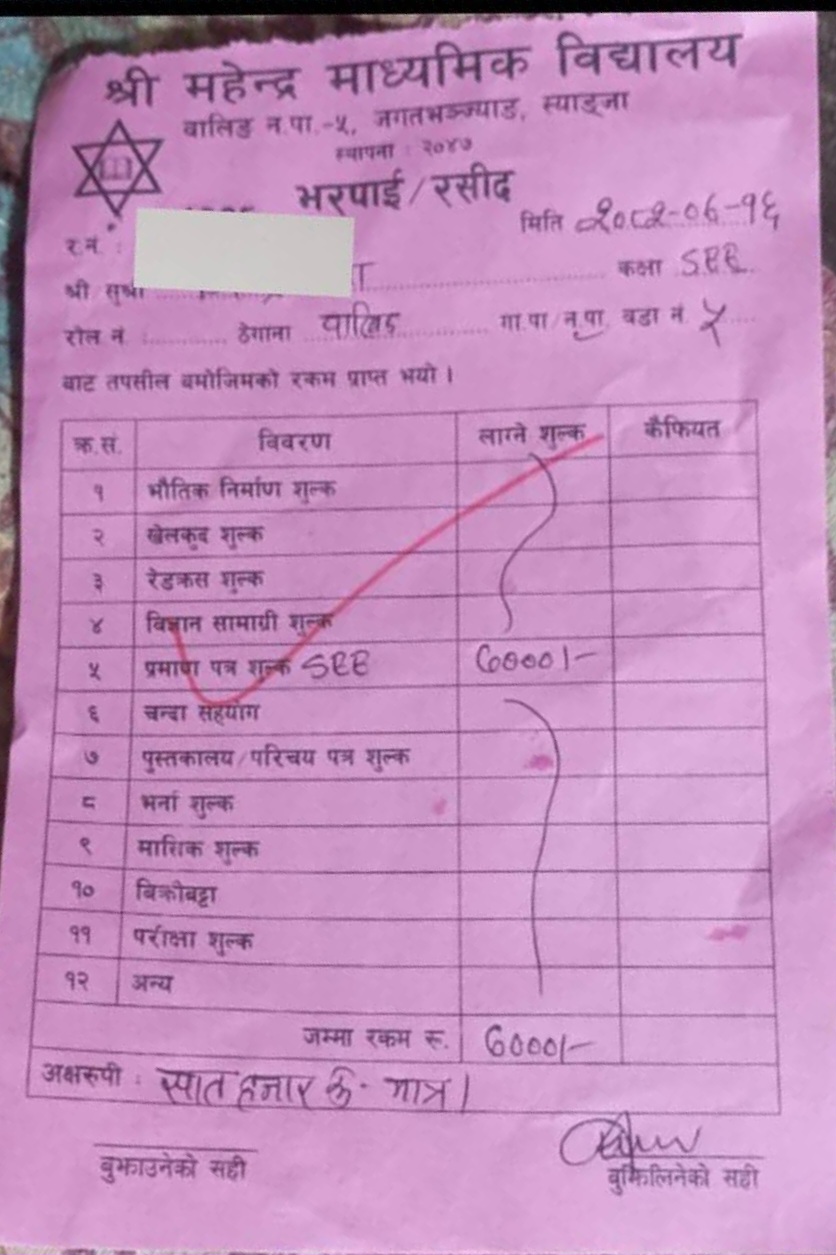 श्री महेन्द्र माध्यमिक विद्यालय
वालिङ न.पा.-५, जगतभञ्ज्याङ, स्याङ्जा
स्थापना : २०४७
भरपाई/रसीद
र.नं. : मिति २०८२-०६-१६
श्री सुश्री कक्षा SEE
रोल नं. ठेगाना वालिङ गा.पा/न.पा. वडा नं. ५
बाट तपसील बमोजिमको रकम प्राप्त भयो ।
क्र.सं. विवरण लाग्ने शुल्क कैफियत
१ भौतिक निर्माण शुल्क
२ खेलकुद शुल्क
३ रेडक्रस शुल्क
४ विज्ञान सामाग्री शुल्क
५ प्रमाण पत्र शुल्क SEE ७०००/-
६ चन्दा सहयोग
७ पुस्तकालय/परिचय पत्र शुल्क
८ भर्ना शुल्क
९ मासिक शुल्क
१० बिक्रीबट्टा
११ परीक्षा शुल्क
१२ अन्य
जम्मा रकम रु. ७०००/-
अक्षरुपी : सात हजार रु. मात्र।
बुझाउनेको सही बुझिलिनेको सही